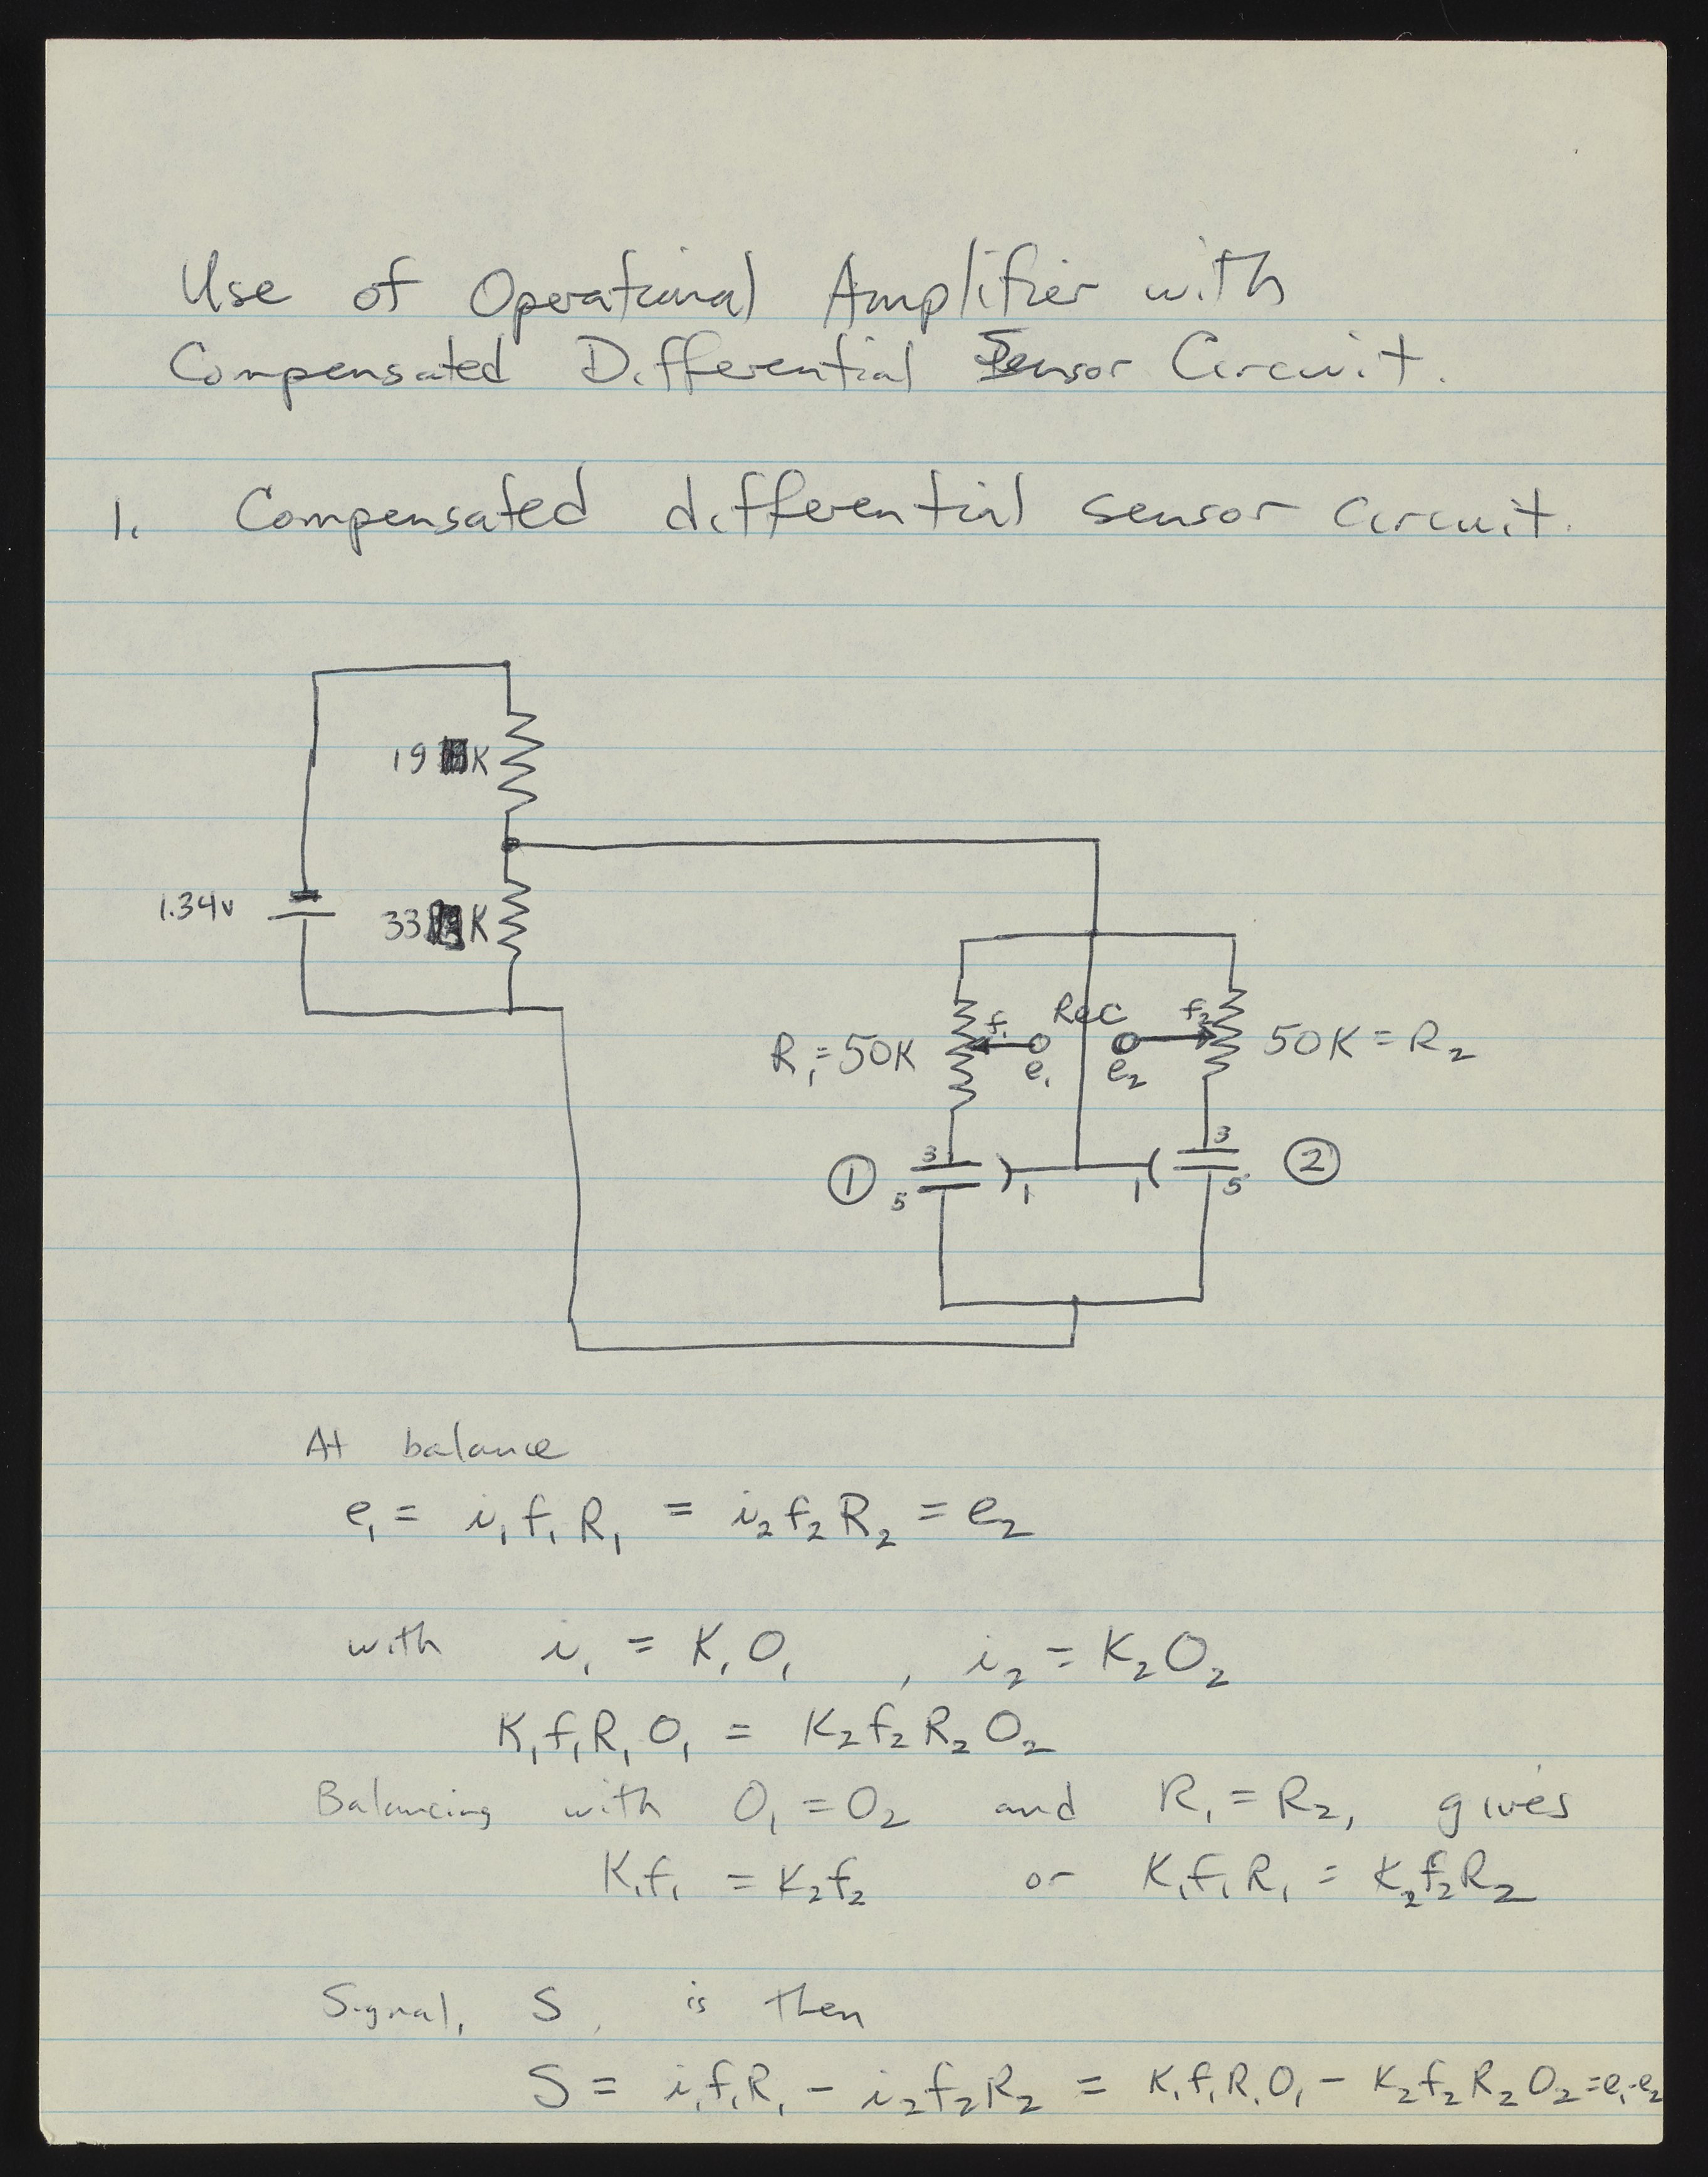 Use of Operational Amplifier with
Compensated Differential Sensor Circuit.
1. Compensated differential sensor circuit.
19 K
1.34v
33 K
R₁=50K
f₁
Rec
f₂
50K=R₂
e₁
e₂
① 3 5
1
1
3 5 ②
At balance
e₁ = i₁ f₁ R₁ = i₂ f₂ R₂ = e₂
with i₁ = K₁O₁ , i₂ = K₂O₂
K₁f₁R₁O₁ = K₂f₂R₂O₂
Balancing with O₁=O₂ and R₁=R₂, gives
K₁f₁ = K₂f₂ or K₁f₁R₁ = K₂f₂R₂
Signal, S, is then
S = i₁f₁R₁ - i₂f₂R₂ = K₁f₁R₁O₁ - K₂f₂R₂O₂=e₁-e₂